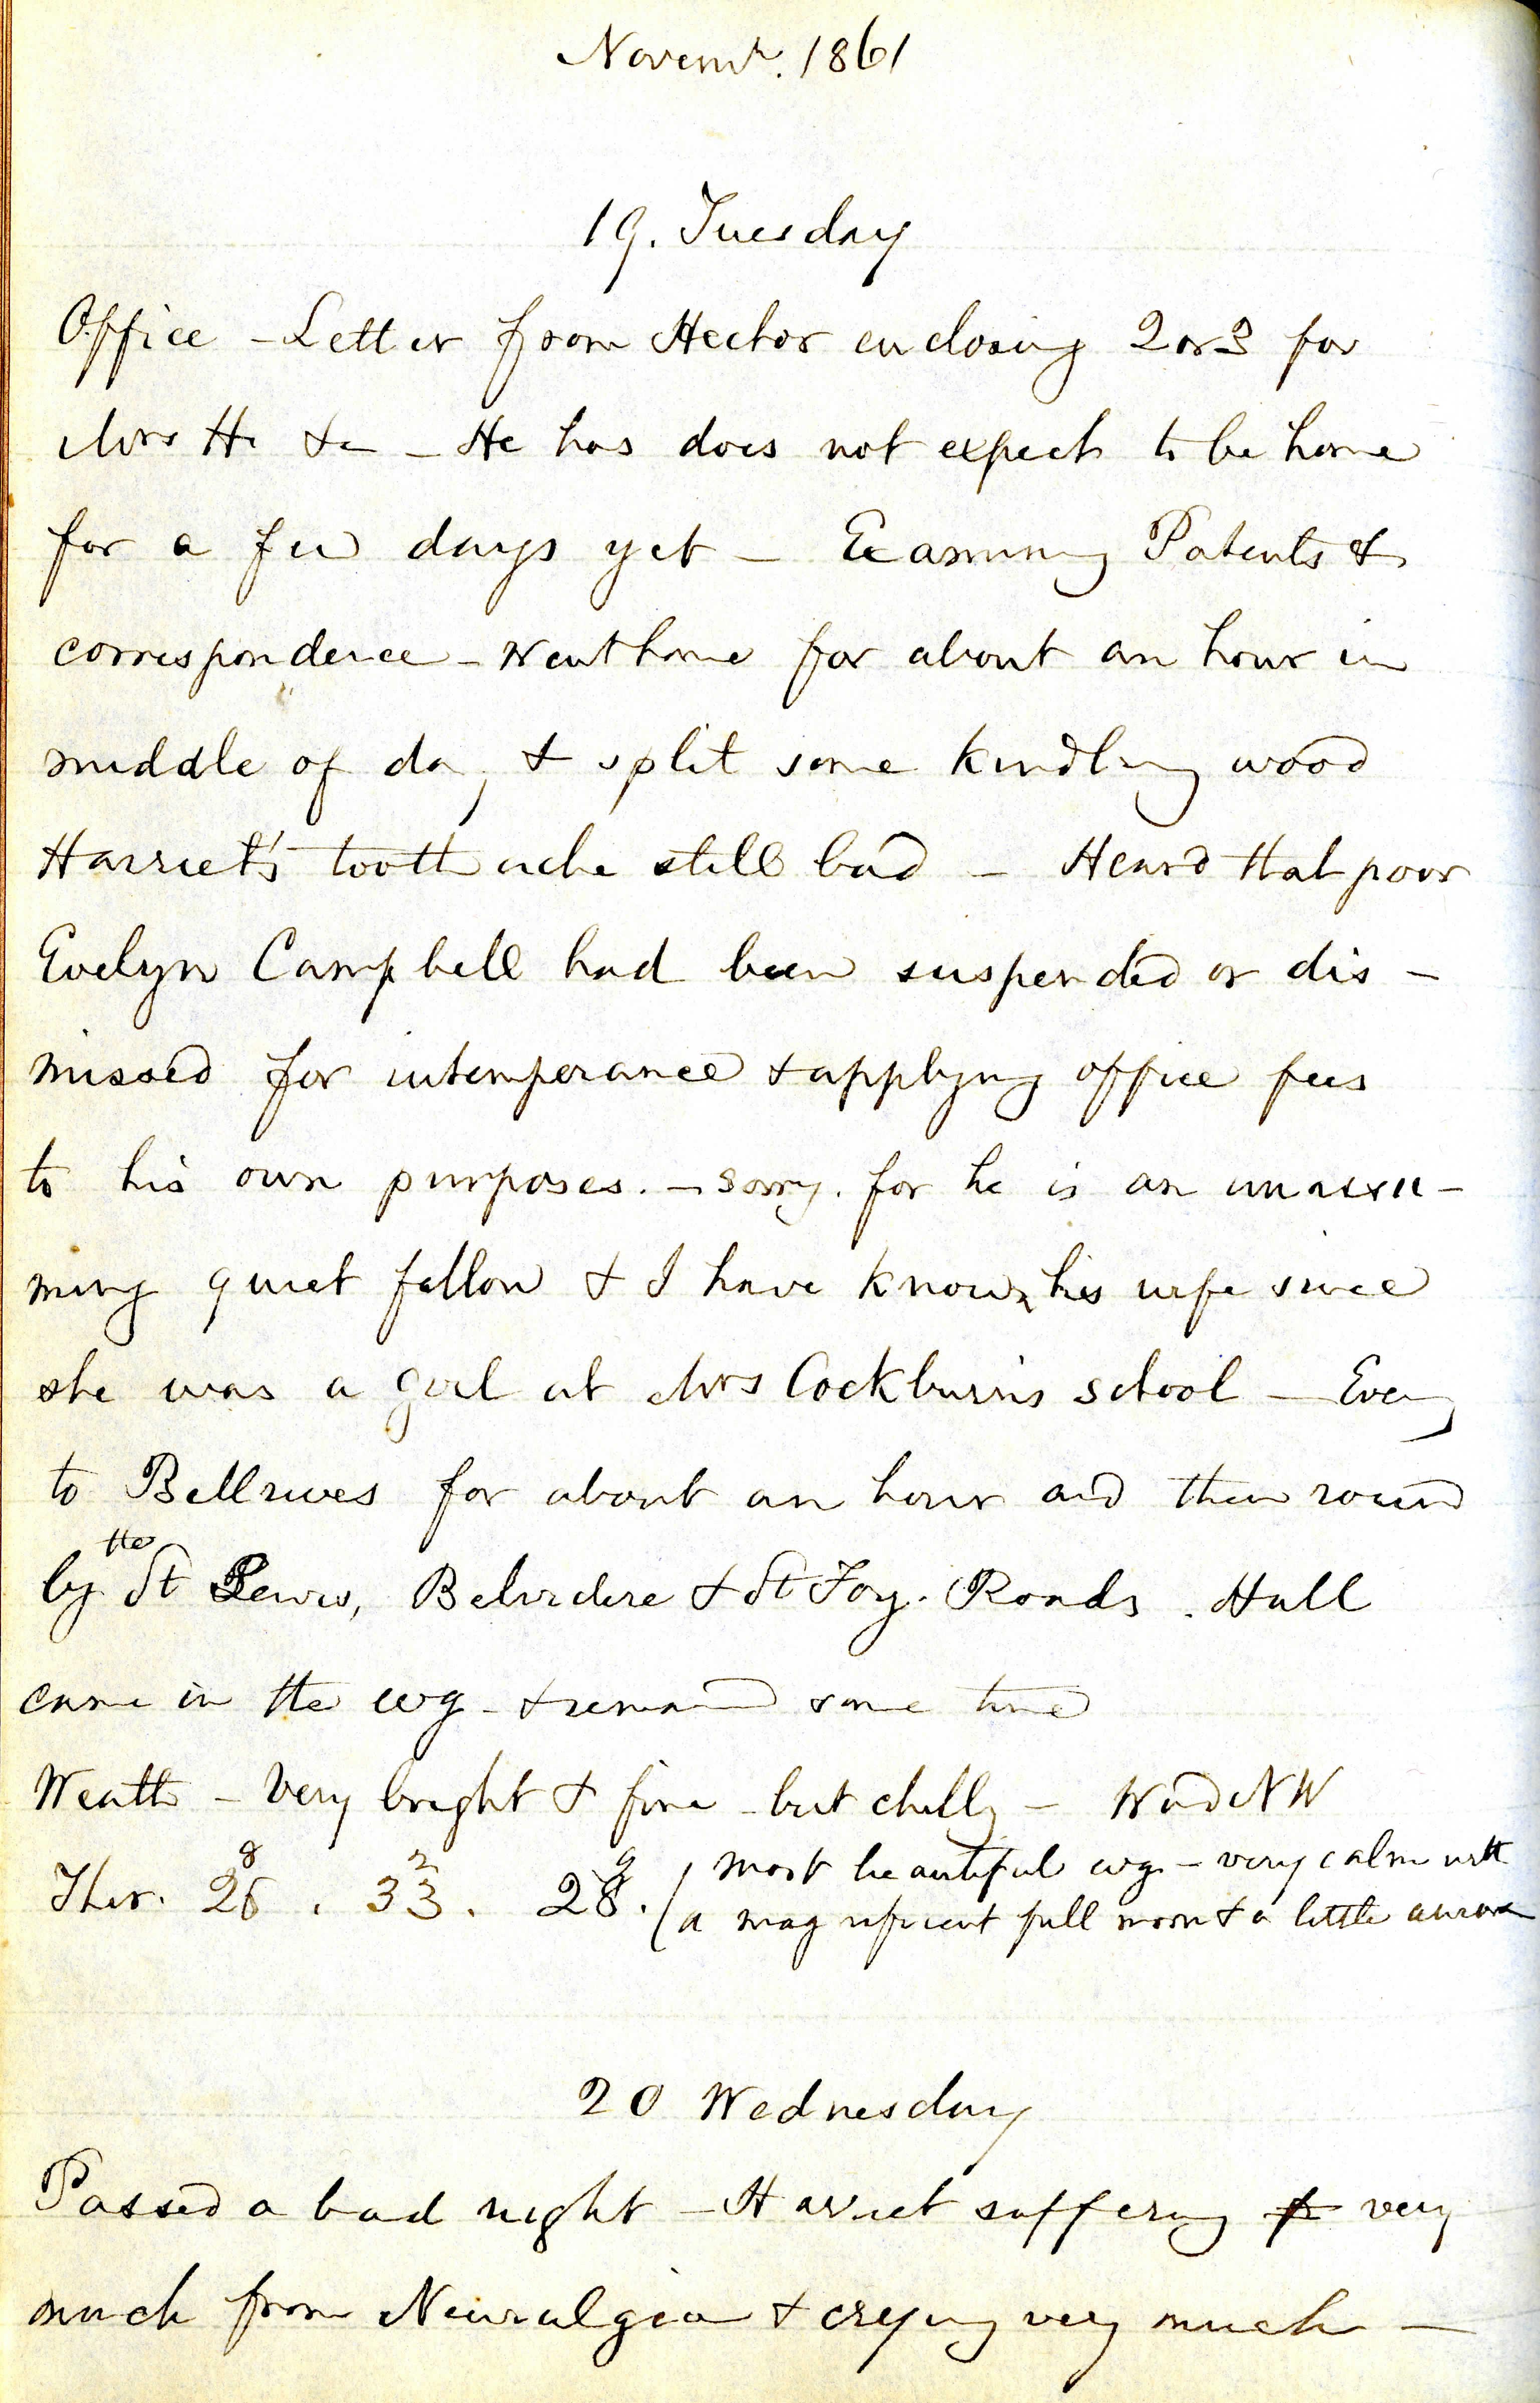 Novemr. 1861
19. Tuesday
Office - Letter from Hector enclosing 2 or 3 for
Mrs H. &c - He has does not expect to be home
for a few days yet - Examining Patents &
correspondence - Went home for about an hour in
middle of day & split some kindling wood
Harriet's toothache still bad - Heard that poor
Evelyn Campbell had been suspended or dis-
missed for intemperance & applying office fees
to his own purposes. - sorry. for he is an unassu-
ming quiet fellow & I have known his wife since
she was a girl at Mrs Cockburn's school - Eveng
to Bellrives for about an hour and then round
by the St Lewis, Belvidere & St Foy. Roads. Hall
came in the evg - & remaind some time
Weath - Very bright & fine - but chilly - Wind NW
Ther. 26 8 . 33 2 . 28 9 . (most beautiful evg - very calm with
a magnificent full moon & a little aurora
20 Wednesday
Passed a bad night - Harriet suffering very
much from Neuralgia & crying very much -